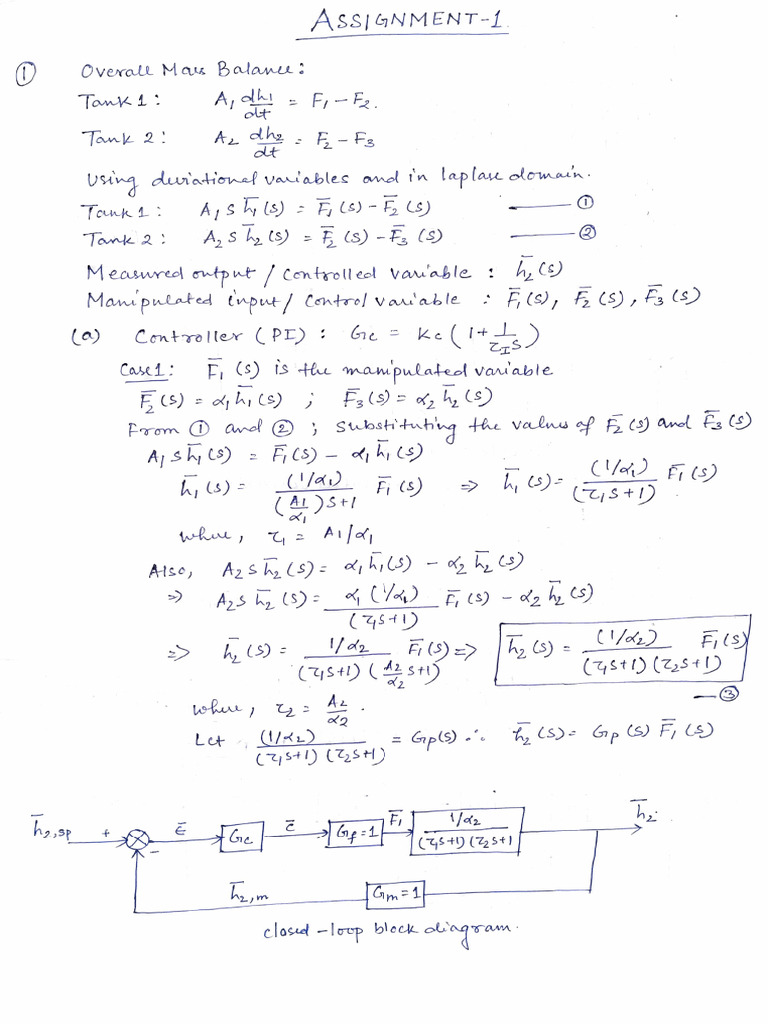 ASSIGNMENT-1
① Overall Mass Balance:
Tank 1: A₁ dh₁/dt = F₁ - F₂.
Tank 2: A₂ dh₂/dt = F₂ - F₃
Using deviational variables and in laplase domain.
Tank 1: A₁ s h̄₁(s) = F̄₁(s) - F̄₂(s) —— ①
Tank 2: A₂ s h̄₂(s) = F̄₂(s) - F̄₃(s) —— ②
Measured output / controlled variable : h̄₂(s)
Manipulated input / control variable : F̄₁(s), F̄₂(s), F̄₃(s)
(a) Controller (PI): Gc = Kc(1 + 1/τ_I s)
Case 1: F̄₁(s) is the manipulated variable
F̄₂(s) = α₁h̄₁(s) ; F̄₃(s) = α₂h̄₂(s)
From ① and ② ; substituting the values of F̄₂(s) and F̄₃(s)
A₁ s h̄₁(s) = F̄₁(s) - α₁h̄₁(s)
h̄₁(s) = (1/α₁)/((A₁/α₁)s+1) F̄₁(s) ⇒ h̄₁(s) = (1/α₁)/(τ₁s+1) F̄₁(s)
where, τ₁ = A₁/α₁
Also, A₂ s h̄₂(s) = α₁h̄₁(s) - α₂h̄₂(s)
⇒ A₂ s h̄₂(s) = α₁(1/α₁)/(τ₁s+1) F̄₁(s) - α₂h̄₂(s)
⇒ h̄₂(s) = 1/α₂/((τ₁s+1)(A₂/α₂ s+1)) F̄₁(s) ⇒ h̄₂(s) = (1/α₂)/((τ₁s+1)(τ₂s+1)) F̄₁(s)
—③
where, τ₂ = A₂/α₂.
Let (1/α₂)/((τ₁s+1)(τ₂s+1)) = Gp(s) ∴ h̄₂(s) = Gp(s) F̄₁(s)
h̄₂,sp + - ε̄ Gc c̄ Gf=1 F̄₁ 1/α₂/(τ₁s+1)(τ₂s+1 h̄₂
h̄₂,m Gm=1
closed-loop block diagram.